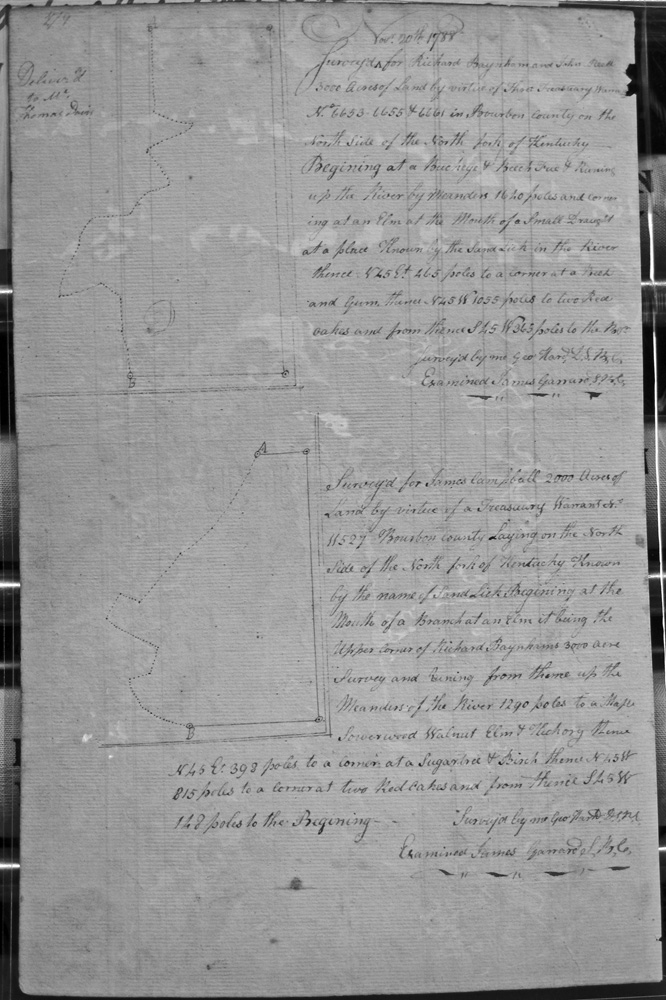 Deliver'd
to Mr
Thomas Davis
Novr. 20th 1788
Survey'd for Richard Baynham and John
3000 Acres of Land by virtue of Three Treasuary Warra
No. 6653 - 6655 & 6661 in Bourbon County on the
North Side of the North fork of Kentucky
Begining at a Buckeye & Beech Tree & Runing
up the River by Meanders 1640 poles and corner
ing at an Elm at the Mouth of a Small Draught
at a place Known by the Sand Lick in the River
thence N45 Et. 265 poles to a Corner at a Beech
and Gum thence N45 W 1055 poles to two Red
oakes and from thence S45 W 363 poles to the
Survey'd by me Geo Hard D.S.B.C.
Examined James Garrard S.B.Co.
A
B
B
Survey'd for James Campbell 2000 Acres of
Land by virtue of a Treasuary Warrant No.
11527 Bourbon County Laying on the North
Side of the North fork of Kentucky Known
by the name of Sand Lick Begining at the
Mouth of a Branch at an Elm it being the
Upper Corner of Richard Baynhams 3000 acre
Survey and Runing from thence up the
Meanders of the River 1290 poles to a Maple
Sowerwood Walnut Elm & Hickory thence
N 45 Et 398 poles to a corner at a Sugartree & Birch thence N 45 W
815 poles to a corner at two Red oakes and from thence S 45 W
148 poles to the Begining
Survey'd by me Geo Hard
Examined James Garrard S.B.Co.